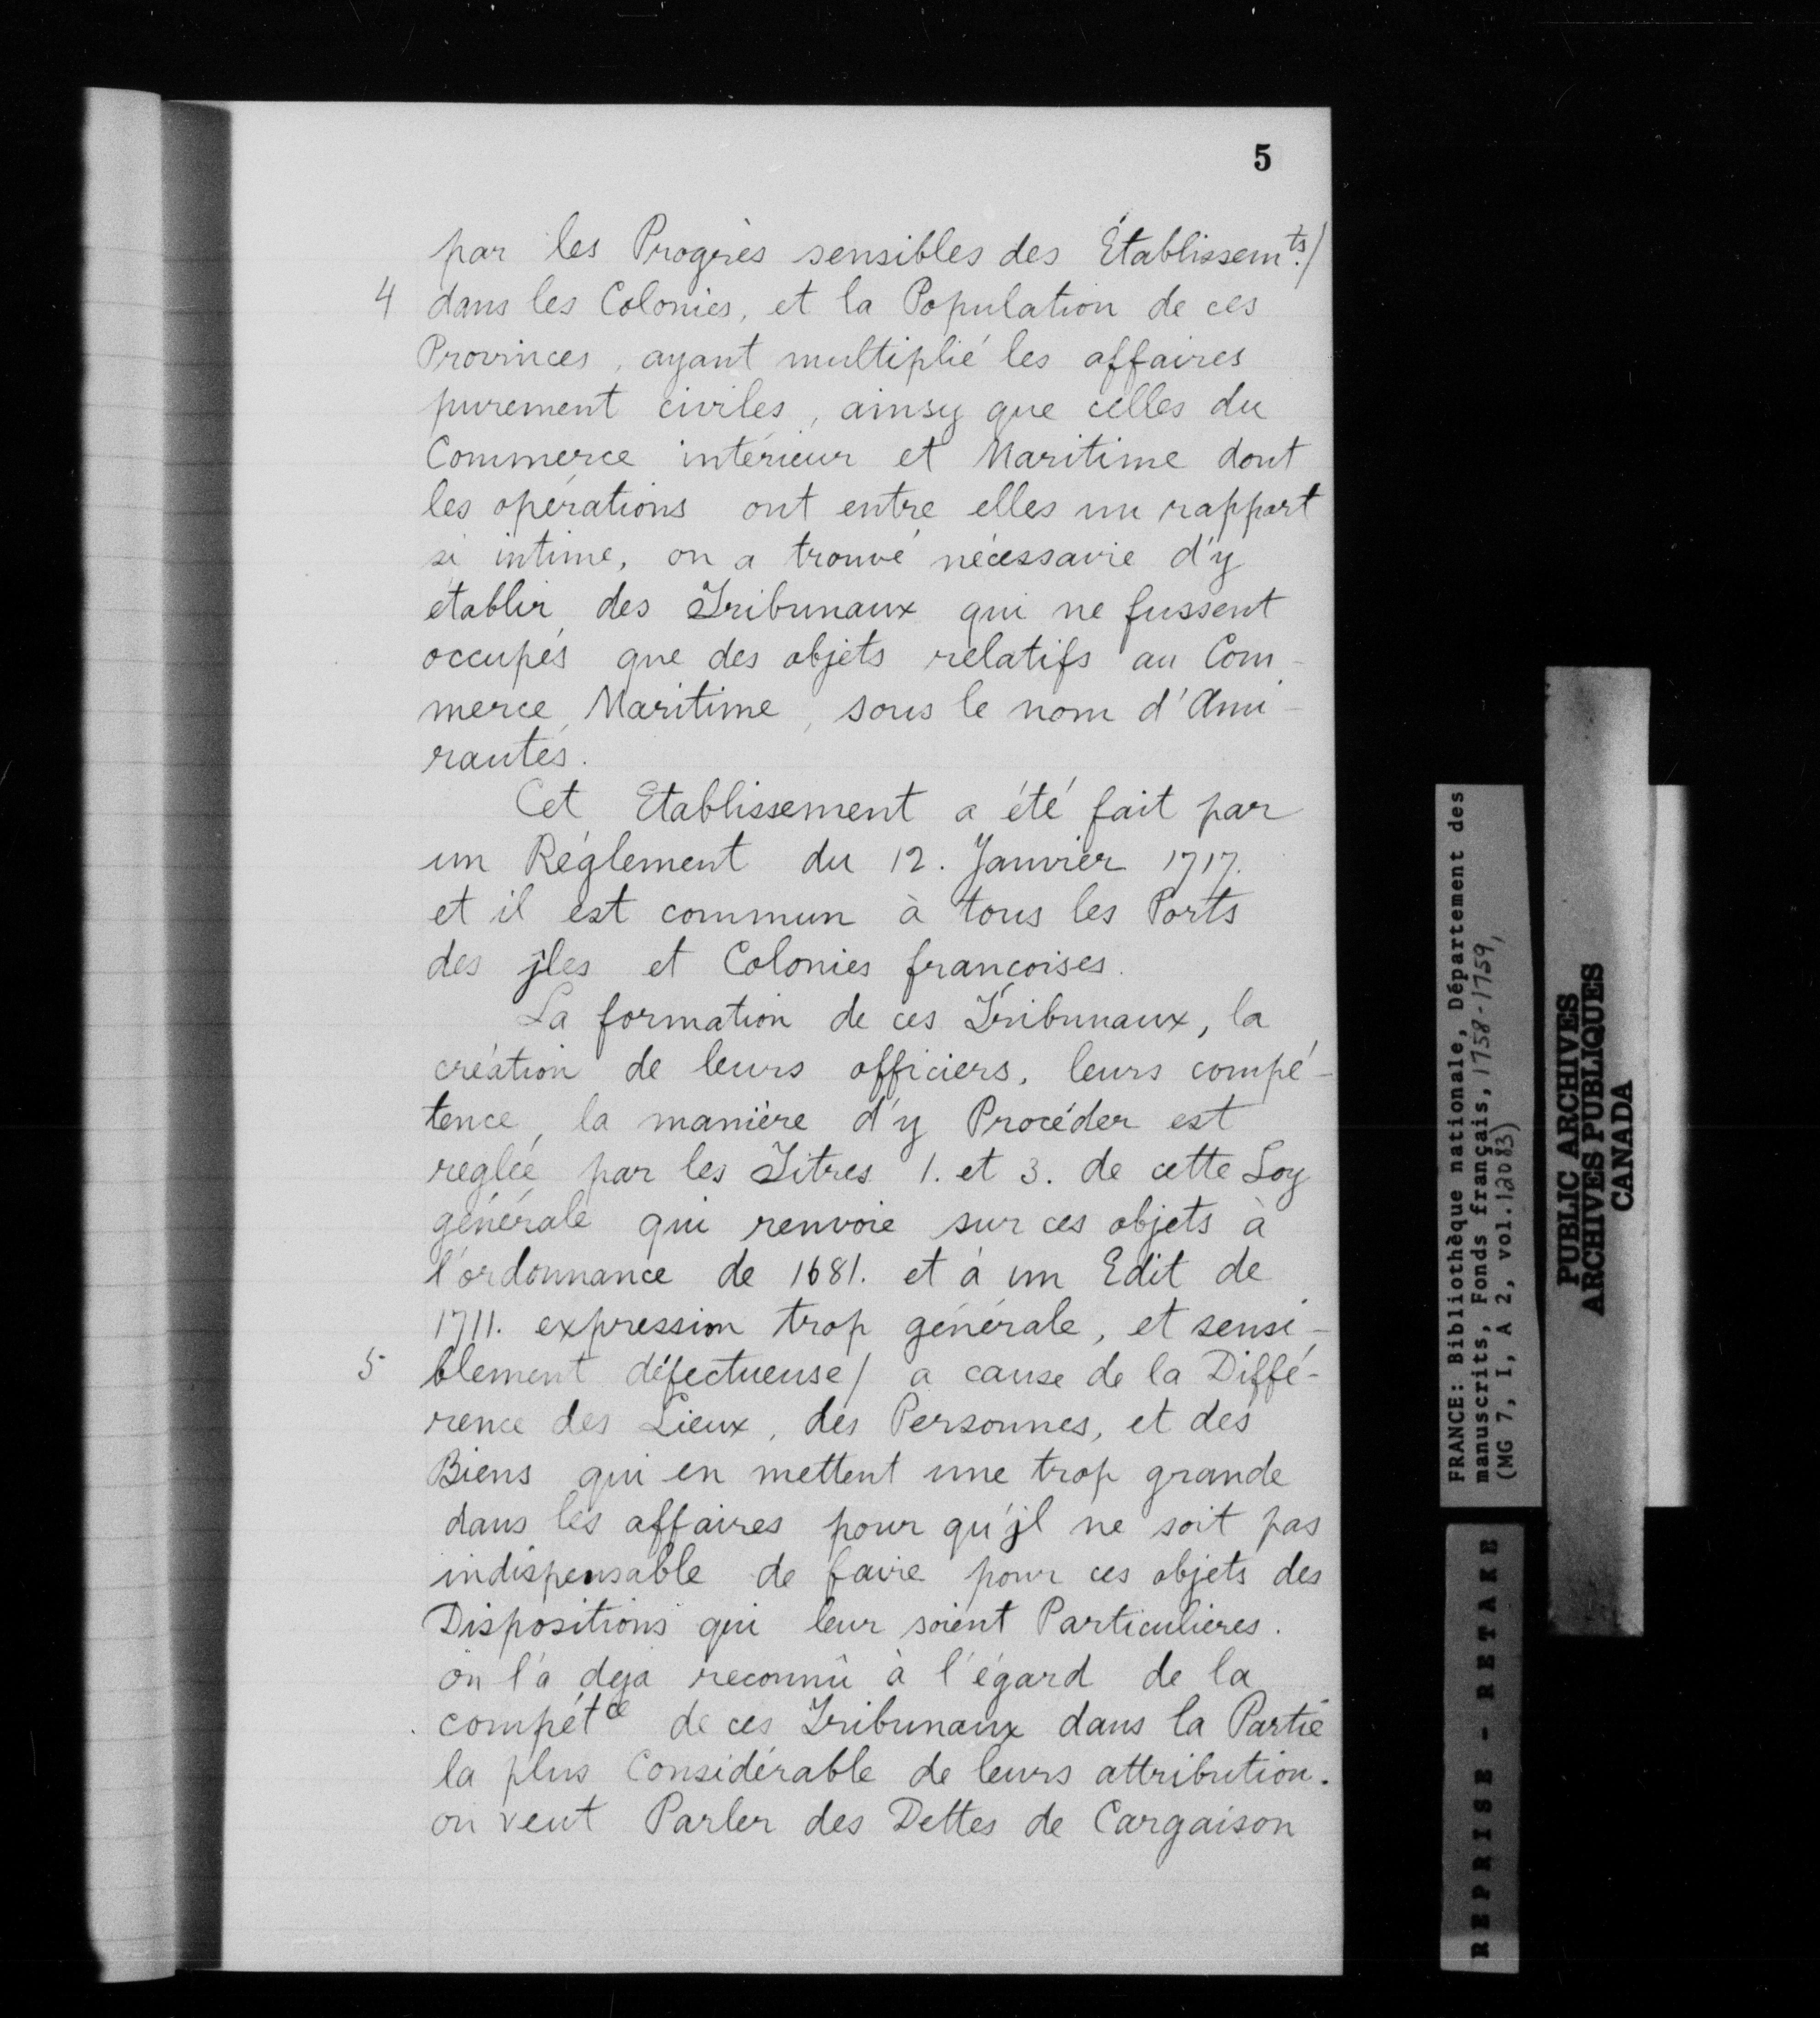 5
par les Progrès sensibles des Établissem.ts/
4 dans les Colonies, et la Population de ces
Provinces, ayant multiplié les affaires
purement civiles, ainsy que celles du
Commerce intérieur et Maritime dont
les opérations ont entre elles un rapport
si intime, on a trouvé nécessaire d'y
établir des Tribunaux qui ne fussent
occupés que des objets relatifs au Com-
merce Maritime, sous le nom d'Ami-
rautés.
Cet Etablissement a été fait par
un Réglement du 12. Janvier 1717.
et il est commun à tous les Ports
des jles et Colonies françoises.
La formation de ces Tribunaux, la
création de leurs officiers, leurs compé-
tence, la manière d'y Procéder est
reglée par les Titres 1. et 3. de cette Loy
générale qui renvoie sur ces objets à
l'ordonnance de 1681. et à un Edit de
1711. expression trop générale, et sensi-
5 blement défectueuse/ a cause de la Diffé-
rence des Lieux, des Personnes, et des
Biens qui en mettent une trop grande
dans les affaires pour qu'jl ne soit pas
indispensable de faire pour ces objets des
Dispositions qui leur soient Particulieres.
on l'a deja reconnû à l'égard de la
compétce de ces Tribunaux dans la Partie
la plus Considérable de leurs attribution.
on veut Parler des Dettes de Cargaison
FRANCE: Bibliothèque nationale, Département des
manuscrits, Fonds français, 1758-1759,
(MG 7, I, A 2, vol. 12083)
PUBLIC ARCHIVES
ARCHIVES PUBLIQUES
CANADA
REPRISE - RETAKE